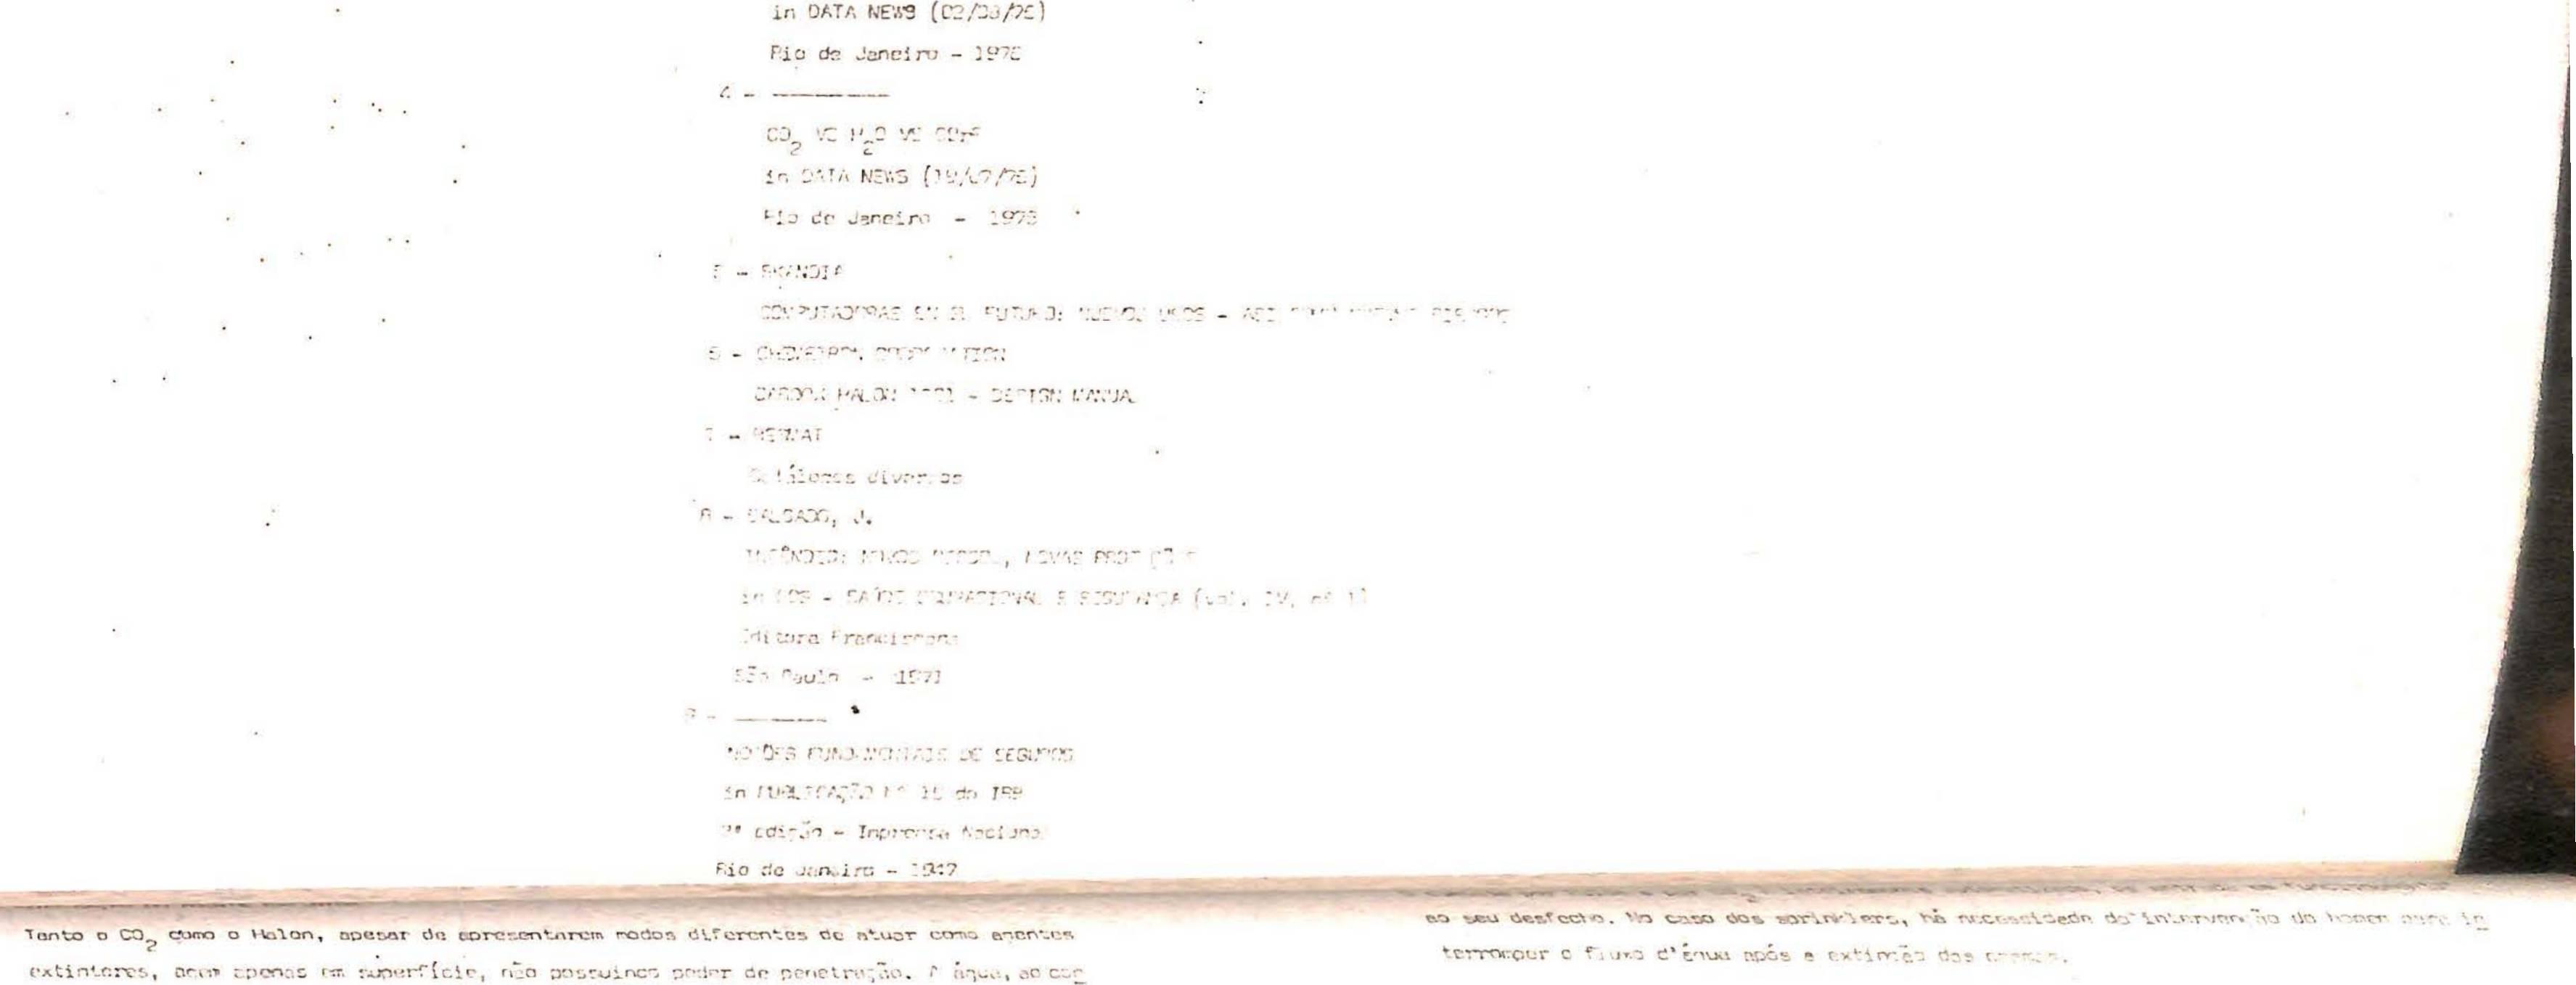 in DATA NEWS (02/08/76)
Rio de Janeiro - 197
4 - ________
CO2 VS H2O VS
in DATA NEWS (19/07/76)
Rio de Janeiro - 197
5 - SKANDIA
COMPUTADORAS EN EL FUTURO: NUEVOS USOS -
6 - CHEMETRON CORPORATION
CARDOX HALON 1301 - DESIGN MANUAL
7 - RESMAT
Catálogos diversos
8 - SALGADO, J.
INCÊNDIO: NOVOS RISCOS, NOVAS PROTEÇÕES
in SOS - SAÚDE OCUPACIONAL E SEGURANÇA (vol. IV, nº 1)
Editora Franciscana
São Paulo - 197
9 - ________
NOÇÕES FUNDAMENTAIS DE SEGUROS
in PUBLICAÇÃO Nº do IRB
edição - Imprensa Nacional
Rio de Janeiro - 1947
Tanto o CO2 como o Halon, apesar de apresentarem modos diferentes de atuar como agentes
extintores, agem apenas em superfície, não possuindo poder de penetração. A água, ao con
ao seu desfecho. No caso dos sprinklers, há necessidade da intervenção do homem para in
terromper o fluxo d'água após a extinção das chamas.